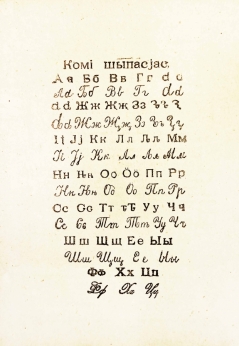 Комі шыпасјас.
Аа Бб Вв Гг
Аа Бб Вв Гг
Жж Җҗ Зз
Жж Җҗ Зз
Іі Јј Кк Лл Љљ Мм
Іі Јј Кк Лл Љљ Мм
Нн Њњ Оо Ӧӧ Пп Рр
Нн Њњ Оо Ӧӧ Пп Рр
Сс Тт Уу Чч
Сс Тт Уу Чч
Шш Щщ Ее Ыы
Шш Щщ Ее Ыы
Фф Хх Цц
Фф Хх Цц